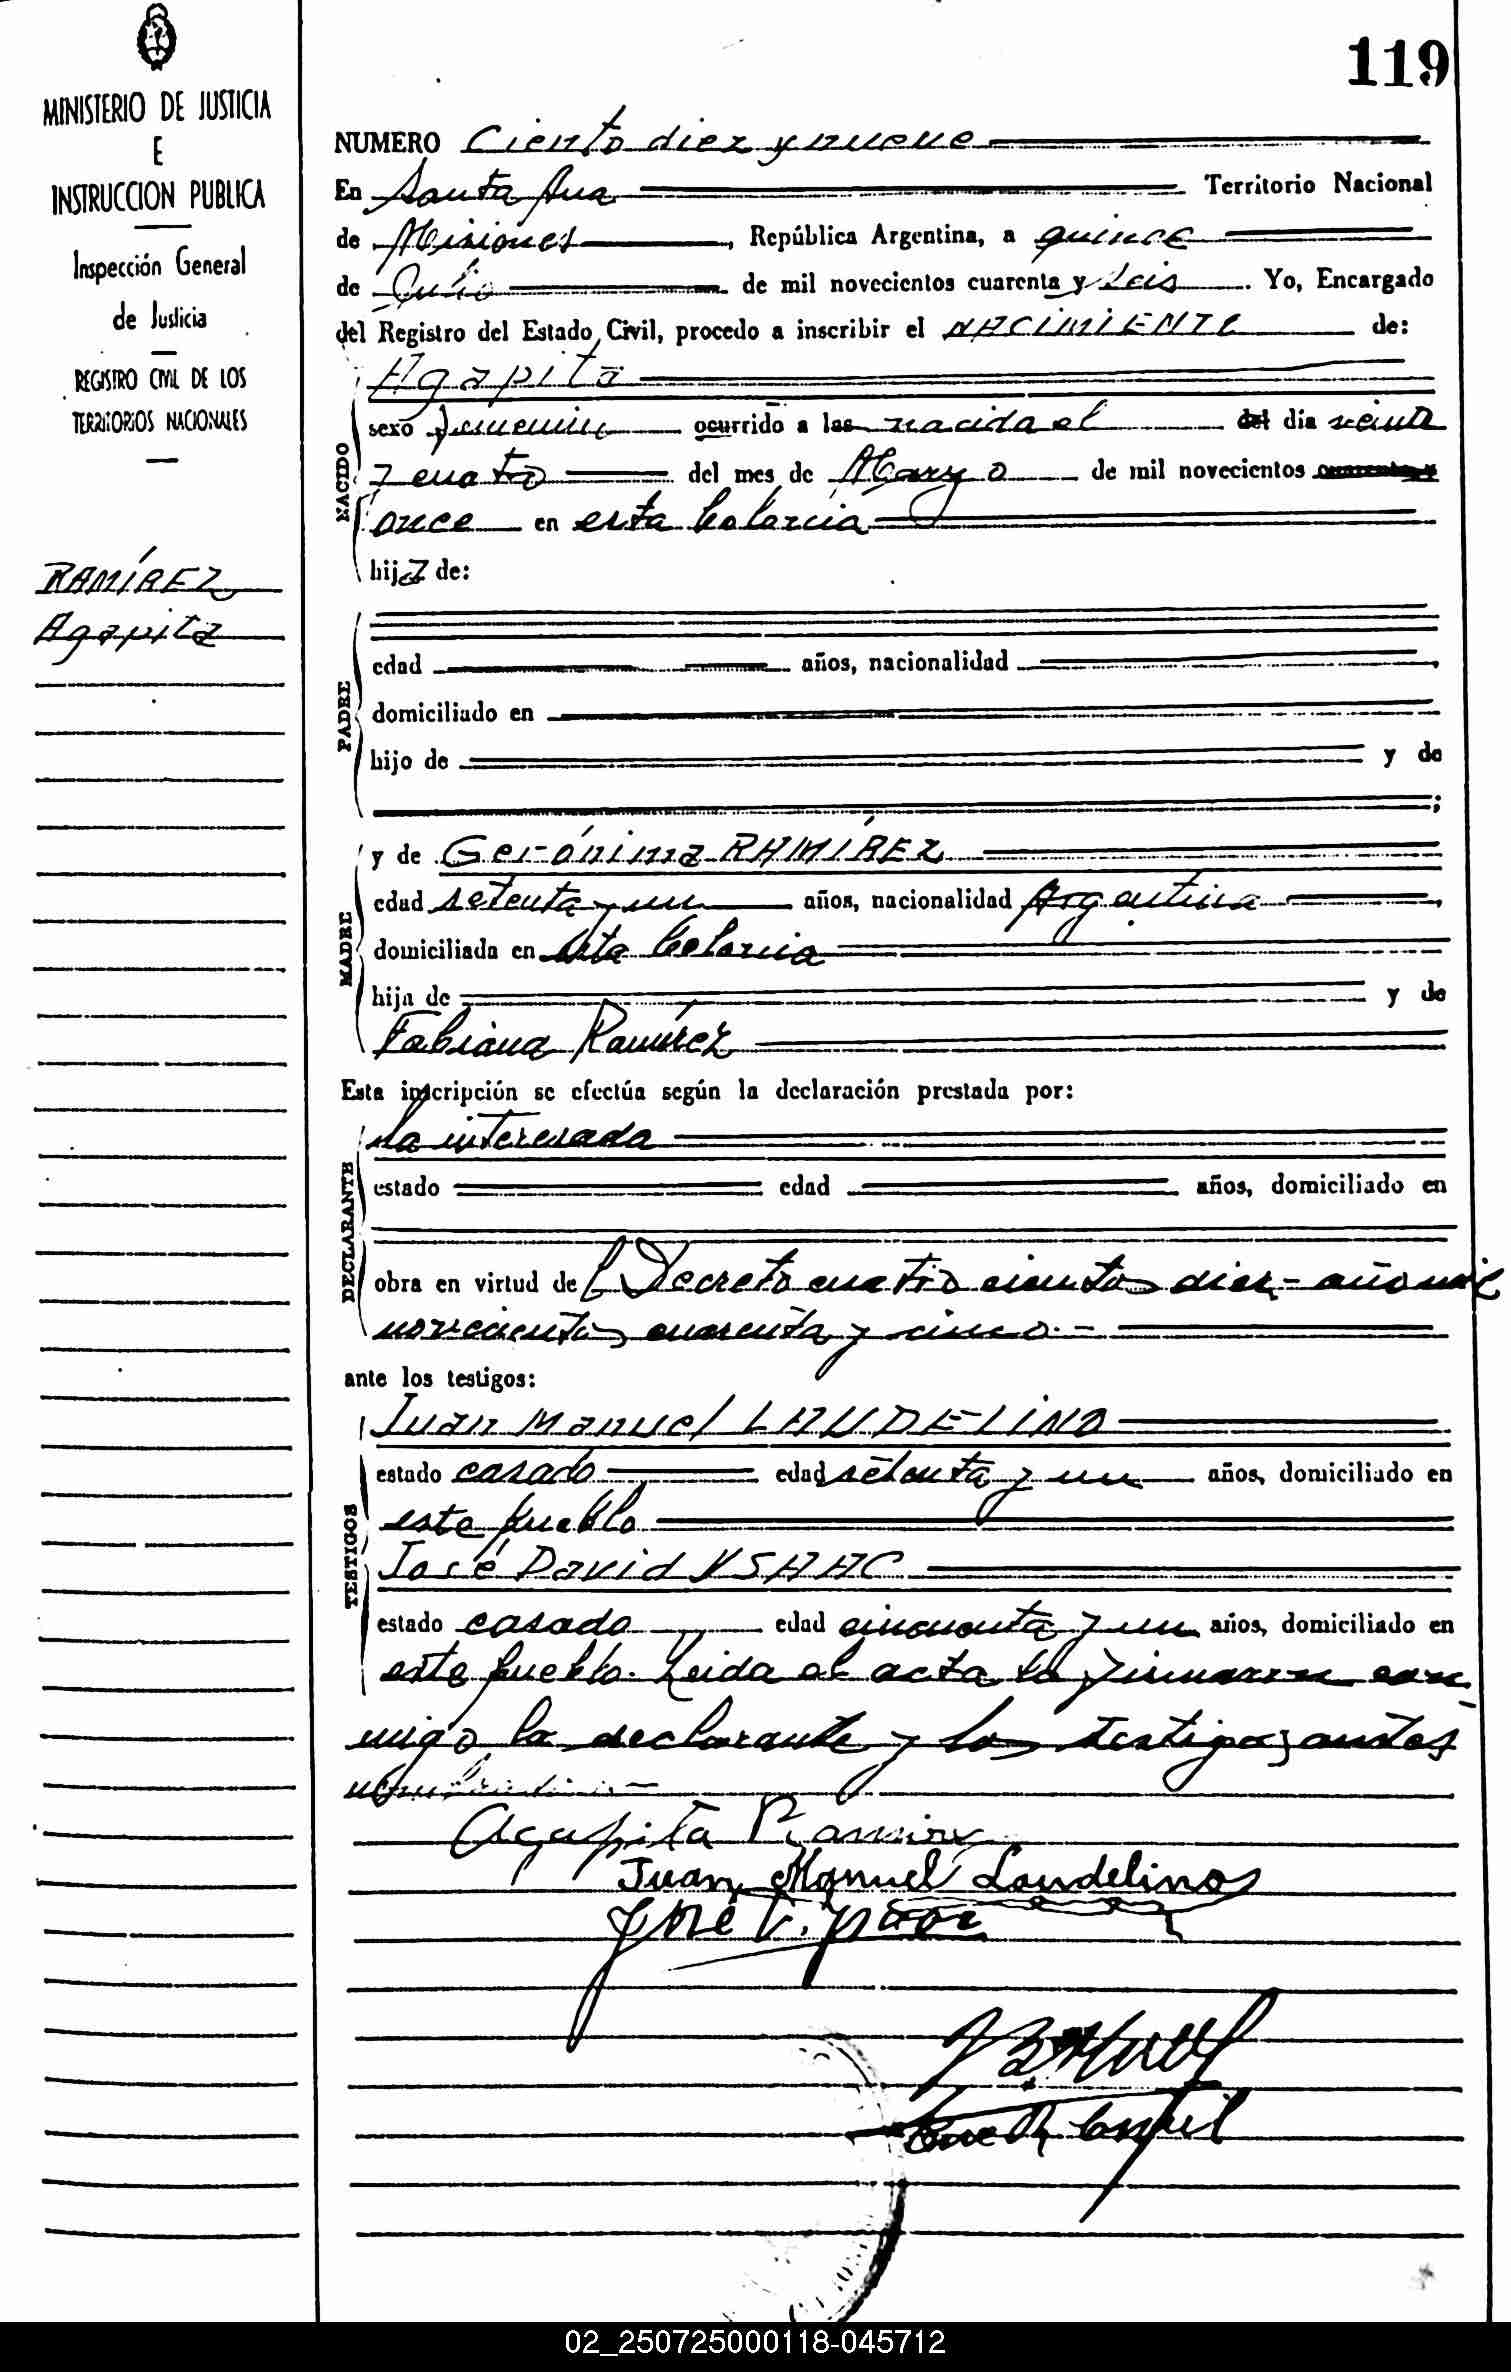 MINISTERIO DE JUSTICIA
E
INSTRUCCION PUBLICA
Inspección General
de Justicia
REGISTRO CIVIL DE LOS
TERRITORIOS NACIONALES
RAMÍREZ
Agapita
119
NUMERO Ciento diez y nueve
En Santa Ana Territorio Nacional
de Misiones, República Argentina, a quince
de Julio de mil novecientos cuarenta y seis. Yo, Encargado
del Registro del Estado Civil, procedo a inscribir el NACIMIENTO de:
NACIDO
Agapita
sexo femenino ocurrido a las nacida el del día veinte
y cuatro del mes de Marzo de mil novecientos cuarenta y
once en esta Colonia
hija de:
PADRE
edad años, nacionalidad
domiciliado en
hijo de y de
;
MADRE
y de Gerónima RAMÍREZ
edad setenta y un años, nacionalidad Argentina,
domiciliada en esta Colonia
hija de y de
Fabiana Ramírez
Esta inscripción se efectúa según la declaración prestada por:
DECLARANTE
la interesada
estado edad años, domiciliado en
obra en virtud del Decreto cuatro cientos diez - año mil
novecientos cuarenta y cinco.-
ante los testigos:
TESTIGOS
Juan Manuel LAUDELINO
estado casado edad setenta y un años, domiciliado en
este pueblo
José David YSAAC
estado casado edad cincuenta y un años, domiciliado en
este pueblo. Leida el acta la firmaron con-
migo la declarante y los testigos antes
Agapita Ramirez
Juan Manuel Laudelino
02_250725000118-045712